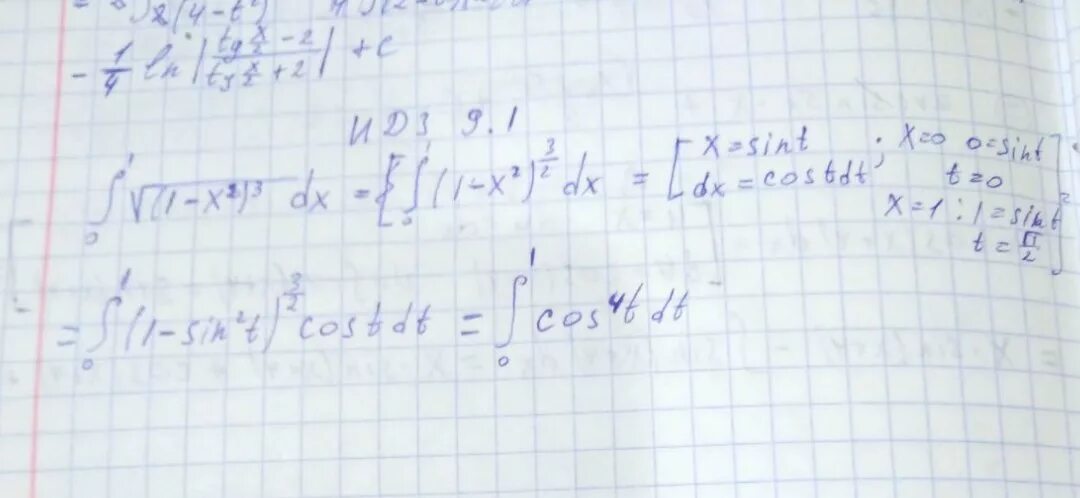 - 1/4 ln | (tg x/2 - 2)/(tg x/2 + 2) | + c
ИДЗ 9.1
∫₀¹ √(1-x²)³ dx = { ∫₀¹ (1-x²)^(3/2) dx = [ x = sint ; x=0 0=sint
dx = costdt t=0
x=1 : 1=sint
t = π/2 ]
= ∫₀¹ (1-sin²t)^(3/2) costdt = ∫₀¹ cos⁴t dt